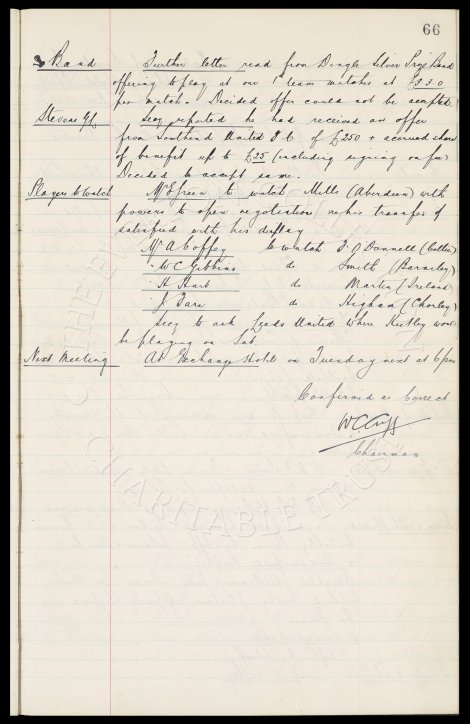 66
Band Further letter read from Dingle Silver Prize Band
offering to play at our 1st team matches at £3.3.0
per match. Decided offer could not be accepted.
Stevens G.L. Secy reported he had received an offer
from Southend United F.C. of £250 + accrued share
of benefit up to £25 (including signing on fee)
Decided to accept same.
Players to watch Mr E Green to watch Mills (Aberdeen) with
powers to open negotiation re his transfer if
satisfied with his display
Mr A Coffey to watch F. O'Donnell (Celtic)
" W C Gibbins do Smith (Barnsley)
" H Hart do Martin (Ireland)
" J Fare do Higham (Chorley)
Secy to ask Leeds United where Keetley would
be playing on Sat.
Next Meeting At Exchange Hotel on Tuesday next at 6 pm
Confirmed as Correct
W.C. Cuff
Chairman
CHARITABLE TRUST